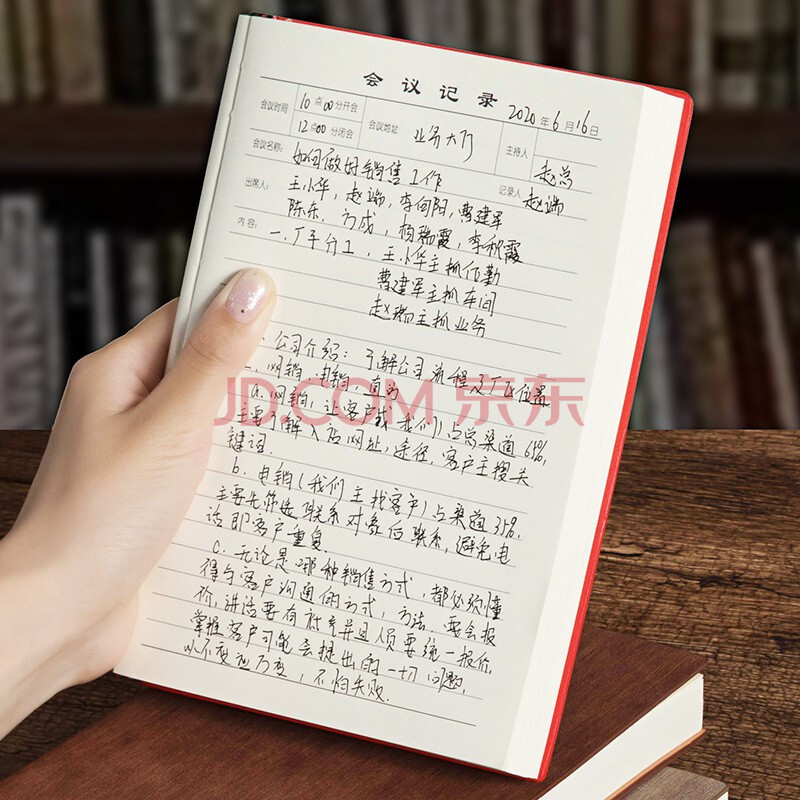 会议记录
2020年6月16日
会议时间 10点00分开会 12点00分闭会 会议地址 业务大厅 主持人 赵总
会议名称: 如何做好销售工作 记录人 赵端
出席人: 王小华, 赵端, 李向阳, 曹建军
陈东, 方成, 杨瑞霞, 李秋霞
内容: 一. 厂手分工, 王小华主抓后勤
曹建军主抓车间
赵端主抓业务
公司介绍: 了解公司流程及厂区位置
一. 网销, 电销, 直销
a. 网销, 让客户找我们) 占总渠道65%,
主要了解入站网址, 途径, 客户主搜关
键词.
b. 电销(我们主找客户) 占渠道35%.
主要先筛选联系对象后联系, 避免电
话即客户重复.
C. 无论是哪种销售方式, 都必须懂
得与客户沟通的方式, 方法. 要会报
价, 讲话要有 并且人员要统一报价,
掌握客户可能会提出的一切问题,
以不变应万变, 不怕失败.
JD.COM 京东